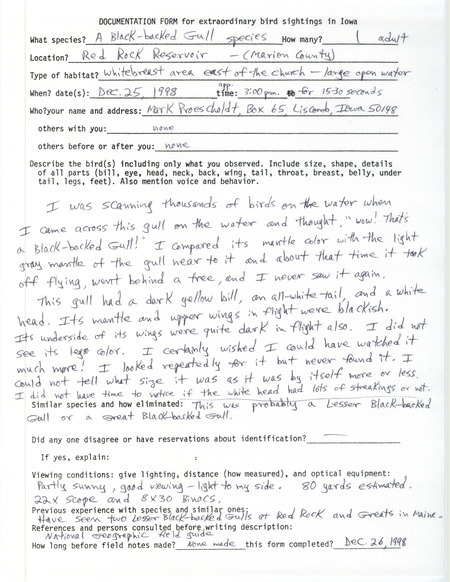 DOCUMENTATION FORM for extraordinary bird sightings in Iowa
What species? A Black-backed Gull species How many? 1 adult
Location? Red Rock Reservoir - (Marion County)
Type of habitat? Whitebreast area east of the church - large open water
When? date(s): Dec. 25, 1998 app. time: 3:00 pm. for 15-30 seconds
Who? your name and address: Mark Proescholdt, Box 65, Liscomb, Iowa 50148
others with you: none
others before or after you: none
Describe the bird(s) including only what you observed. Include size, shape, details
of all parts (bill, eye, head, neck, back, wing, tail, throat, breast, belly, under
tail, legs, feet). Also mention voice and behavior.
I was scanning thousands of birds on the water when
I came across this gull on the water and thought, "wow! That's
a Black-backed Gull!" I compared its mantle color with the light
gray mantle of the gull near to it and about that time it took
off flying, went behind a tree, and I never saw it again.
This gull had a dark yellow bill, an all-white tail, and a white
head. Its mantle and upper wings in flight were blackish.
Its underside of its wings were quite dark in flight also. I did not
see its legs color. I certainly wished I could have watched it
much more! I looked repeatedly for it but never found it. I
could not tell what size it was as it was by itself more or less.
I did not have time to notice if the white head had lots of streakings or not.
Similar species and how eliminated: This was probably a Lesser Black-backed
Gull or a Great Black-backed Gull.
Did any one disagree or have reservations about identification?
If yes, explain:
Viewing conditions: give lighting, distance (how measured), and optical equipment:
Partly sunny, good viewing - light to my side. 80 yards estimated.
22x scope and 8x30 binocs.
Previous experience with species and similar ones:
Have seen two Lesser Black-backed Gulls at Red Rock and Greats in Maine.
References and persons consulted before writing description:
National Geographic field guide
How long before field notes made? None made this form completed? Dec. 26, 1998